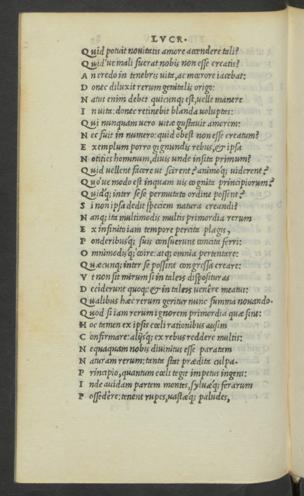 LVCR.
Quid potuit nouitatis amore accendere tali?
Quid'ue mali fuerat nobis non esse creatis?
An credo in tenebris uita, ac mœrore iacebat:
Donec diluxit rerum genitalis origo:
Natus enim debet quicunq; est, uelle manere
In uita: donec retinebit blanda uoluptas:
Qui nunquam uero uitæ gustauit amorem:
Nec fuit in numero: quid obest non esse creatum?
Exemplum porro gignundis rebus, & ipsa
Notities hominum, diuis unde insita primum?
Quid uellent facere ut scirent? animo'q; uiderent?
Quo'ue modo est inquam uis cognita principiorum?
Quid'q; inter sese permutato ordine possint?
Si non ipsa dedit specimen natura creandi?
Nanq; ita multimodis multis primordia rerum
Ex infinito iam tempore percita plagis,
Ponderibus'q; suis consuerunt concita ferri:
Omnimodis'q; coire: atq; omnia pertentare:
Quæcunq; inter se possint congressa creare:
Vt non sit mirum si in taleis disposituras
Deciderunt quoq: & in taleis uenere meatus:
Qualibus hæc rerum geritur nunc summa nouando.
Quod si iam rerum ignorem primordia quæ sint:
Hoc tamen ex ipsis cœli rationibus ausim
Confirmare: alijs'q; ex rebus reddere multis:
Nequaquam nobis diuinitus esse paratam
Naturam rerum: tanta stat prædita culpa.
Principio, quantum cœli tegit impetus ingens:
Inde auidam partem montes, syluæ'q; ferarum
Possedere: tenent rupes, uastæ'q; paludes,